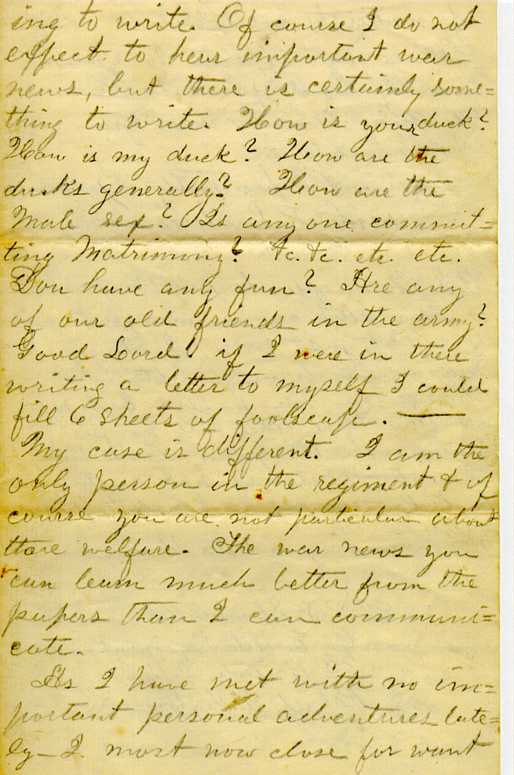 ing to write. Of course I do not
expect to hear important war
news, but there is certainly some=
thing to write. How is your duck?
How is my duck? How are the
ducks generally? How are the
Male sex? Is any one commit=
ting Matrimony? &c. &c. etc. etc.
You have any fun? Are any
of our old friends in the army?
Good Lord! if I were in there
writing a letter to myself I could
fill 6 sheets of foolscap. —
My case is different. I am the
only person in the regiment & of
course you are not particular about
thare welfare. The war news you
can learn much better from the
papers than I can communi=
cate.
As I have met with no im=
portant personal adventures late=
ly— I most now close for want